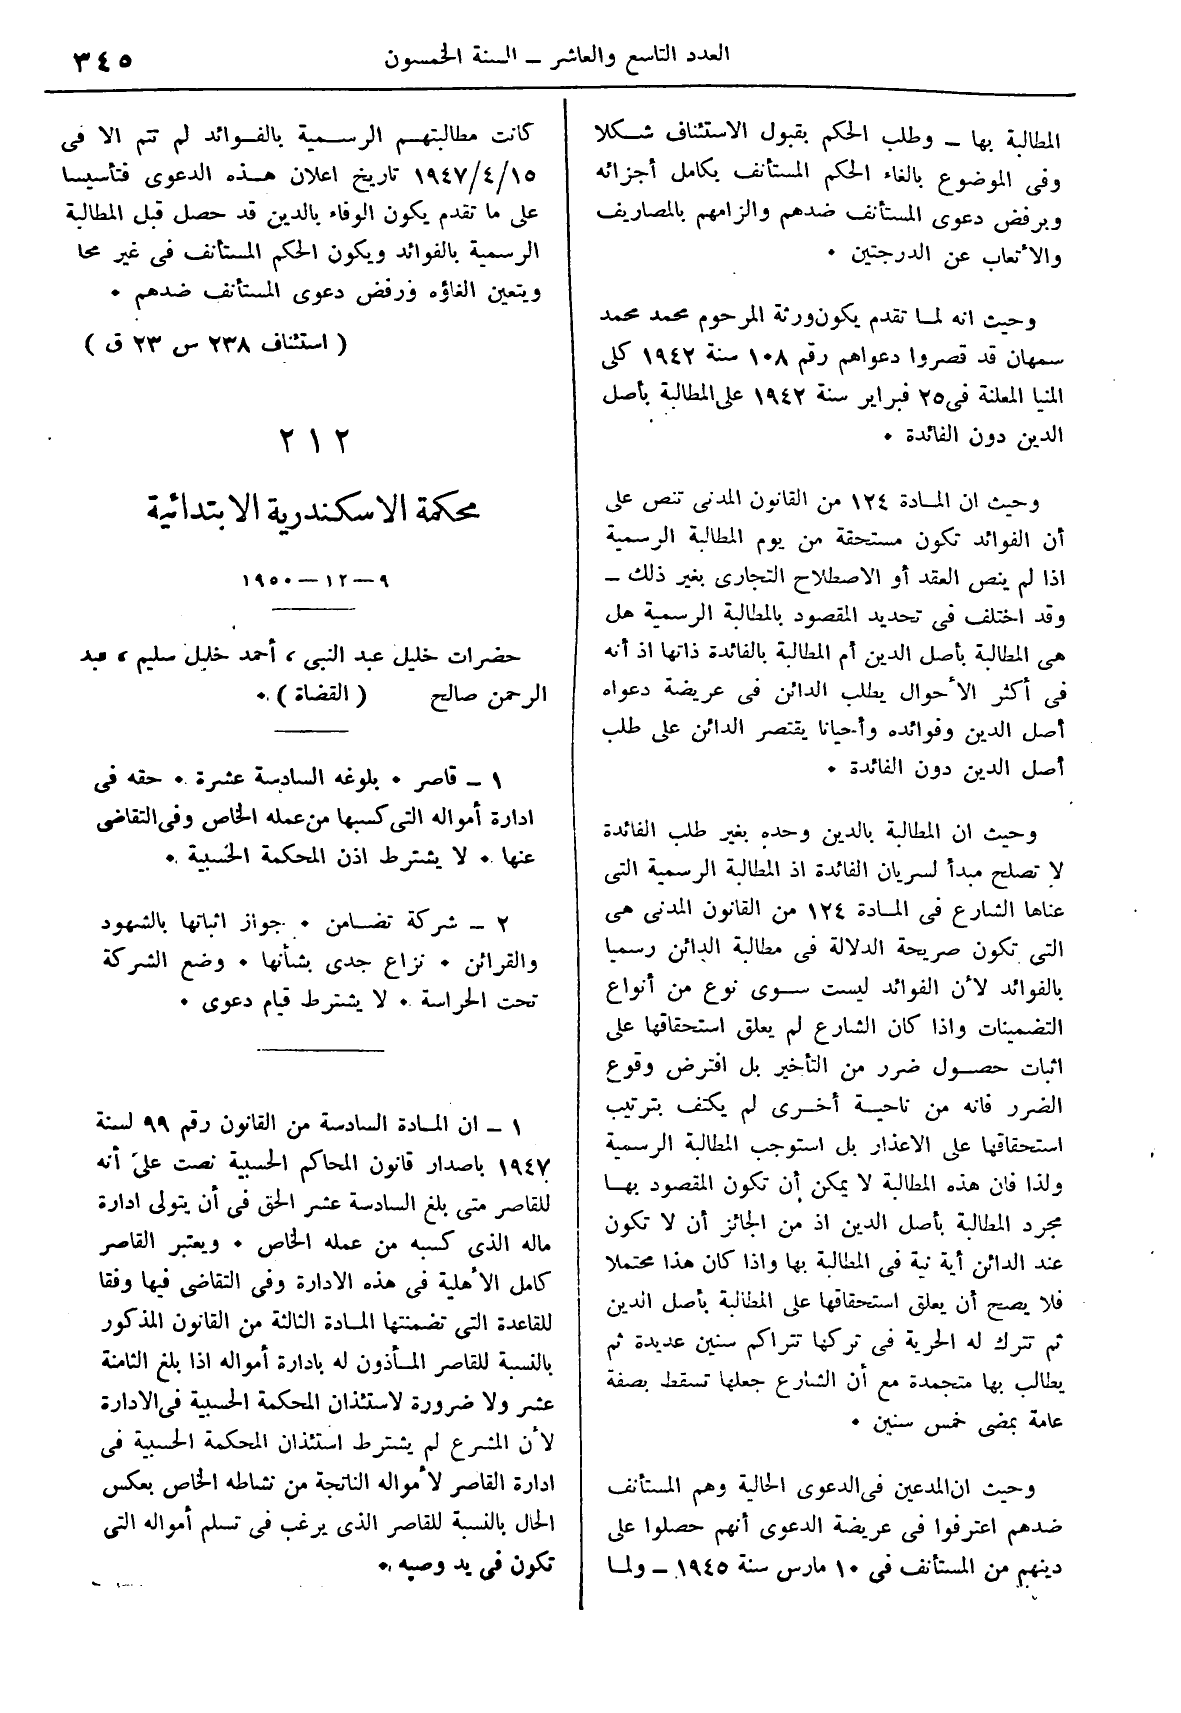 العدد التاسع والعاشر – السنة الخمسون
٣٤٥
المطالبة بها – وطلب الحكم بقبول الاستئناف شكلا
وفى الموضوع بالغاء الحكم المستأنف بكامل أجزائه
وبرفض دعوى المستأنف ضدهم والزامهم بالمصاريف
والأتعاب عن الدرجتين ٠
وحيث انه لما تقدم يكون ورثة المرحوم محمد محمد
سمهان قد قصروا دعواهم رقم ١٠٨ سنة ١٩٤٢ كلى
المنيا المعلنة فى ٢٥ فبراير سنة ١٩٤٢ على المطالبة بأصل
الدين دون الفائدة ٠
وحيث ان المادة ١٢٤ من القانون المدنى تنص على
أن الفوائد تكون مستحقة من يوم المطالبة الرسمية
اذا لم ينص العقد أو الاصطلاح التجارى بغير ذلك –
وقد اختلف فى تحديد المقصود بالمطالبة الرسمية هل
هى المطالبة بأصل الدين أم المطالبة بالفائدة ذاتها اذ أنه
فى أكثر الأحوال يطلب الدائن فى عريضة دعواه
أصل الدين وفوائده وأحيانا يقتصر الدائن على طلب
أصل الدين دون الفائدة ٠
وحيث ان المطالبة بالدين وحده بغير طلب الفائدة
لا تصلح مبدأ لسريان الفائدة اذ المطالبة الرسمية التى
عناها الشارع فى المادة ١٢٤ من القانون المدنى هى
التى تكون صريحة الدلالة فى مطالبة الدائن رسميا
بالفوائد لأن الفوائد ليست سوى نوع من أنواع
التضمينات واذا كان الشارع لم يعلق استحقاقها على
اثبات حصول ضرر من التأخير بل افترض وقوع
الضرر فانه من ناحية أخرى لم يكتف بترتيب
استحقاقها على الاعذار بل استوجب المطالبة الرسمية
ولذا فان هذه المطالبة لا يمكن أن تكون المقصود بها
مجرد المطالبة بأصل الدين اذ من الجائز أن لا تكون
عند الدائن أية نية فى المطالبة بها واذا كان هذا محتملا
فلا يصح أن يعلق استحقاقها على المطالبة بأصل الدين
ثم تترك له الحرية فى تركها تتراكم سنين عديدة ثم
يطالب بها متجمدة مع أن الشارع جعلها تسقط بصفة
عامة بمضى خمس سنين ٠
وحيث ان المدعين فى الدعوى الحالية وهم المستأنف
ضدهم اعترفوا فى عريضة الدعوى أنهم حصلوا على
دينهم من المستأنف فى ١٠ مارس سنة ١٩٤٥ – ولما
كانت مطالبتهم الرسمية بالفوائد لم تتم الا فى
١٩٤٧/٤/١٥ تاريخ اعلان هذه الدعوى فتأسيسا
على ما تقدم يكون الوفاء بالدين قد حصل قبل المطالبة
الرسمية بالفوائد ويكون الحكم المستأنف فى غير محا
ويتعين الغاؤه ورفض دعوى المستأنف ضدهم ٠
( استئناف ٢٣٨ س ٢٣ ق )
٢١٢
محكمة الاسكندرية الابتدائية
٩ – ١٢ – ١٩٥٠
حضرات خليل عبد النبى ، أحمد خليل سليم ، عبد
الرحمن صالح ( القضاة ) ٠
١ – قاصر ٠ بلوغه السادسة عشرة ٠ حقه فى
ادارة أمواله التى كسبها من عمله الخاص وفى التقاضى
عنها ٠ لا يشترط اذن المحكمة الحسبية ٠
٢ – شركة تضامن ٠ جواز اثباتها بالشهود
والقرائن ٠ نزاع جدى بشأنها ٠ وضع الشركة
تحت الحراسة ٠ لا يشترط قيام دعوى ٠
١ – ان المادة السادسة من القانون رقم ٩٩ لسنة
١٩٤٧ باصدار قانون المحاكم الحسبية نصت على أنه
للقاصر متى بلغ السادسة عشر الحق فى أن يتولى ادارة
ماله الذى كسبه من عمله الخاص ٠ ويعتبر القاصر
كامل الأهلية فى هذه الادارة وفى التقاضى فيها وفقا
للقاعدة التى تضمنتها المادة الثالثة من القانون المذكور
بالنسبة للقاصر المأذون له بادارة أمواله اذا بلغ الثامنة
عشر ولا ضرورة لاستئذان المحكمة الحسبية فى الادارة
لأن المشرع لم يشترط استئذان المحكمة الحسبية فى
ادارة القاصر لأمواله الناتجة من نشاطه الخاص بعكس
الحال بالنسبة للقاصر الذى يرغب فى تسلم أمواله التى
تكون فى يد وصيه ٠